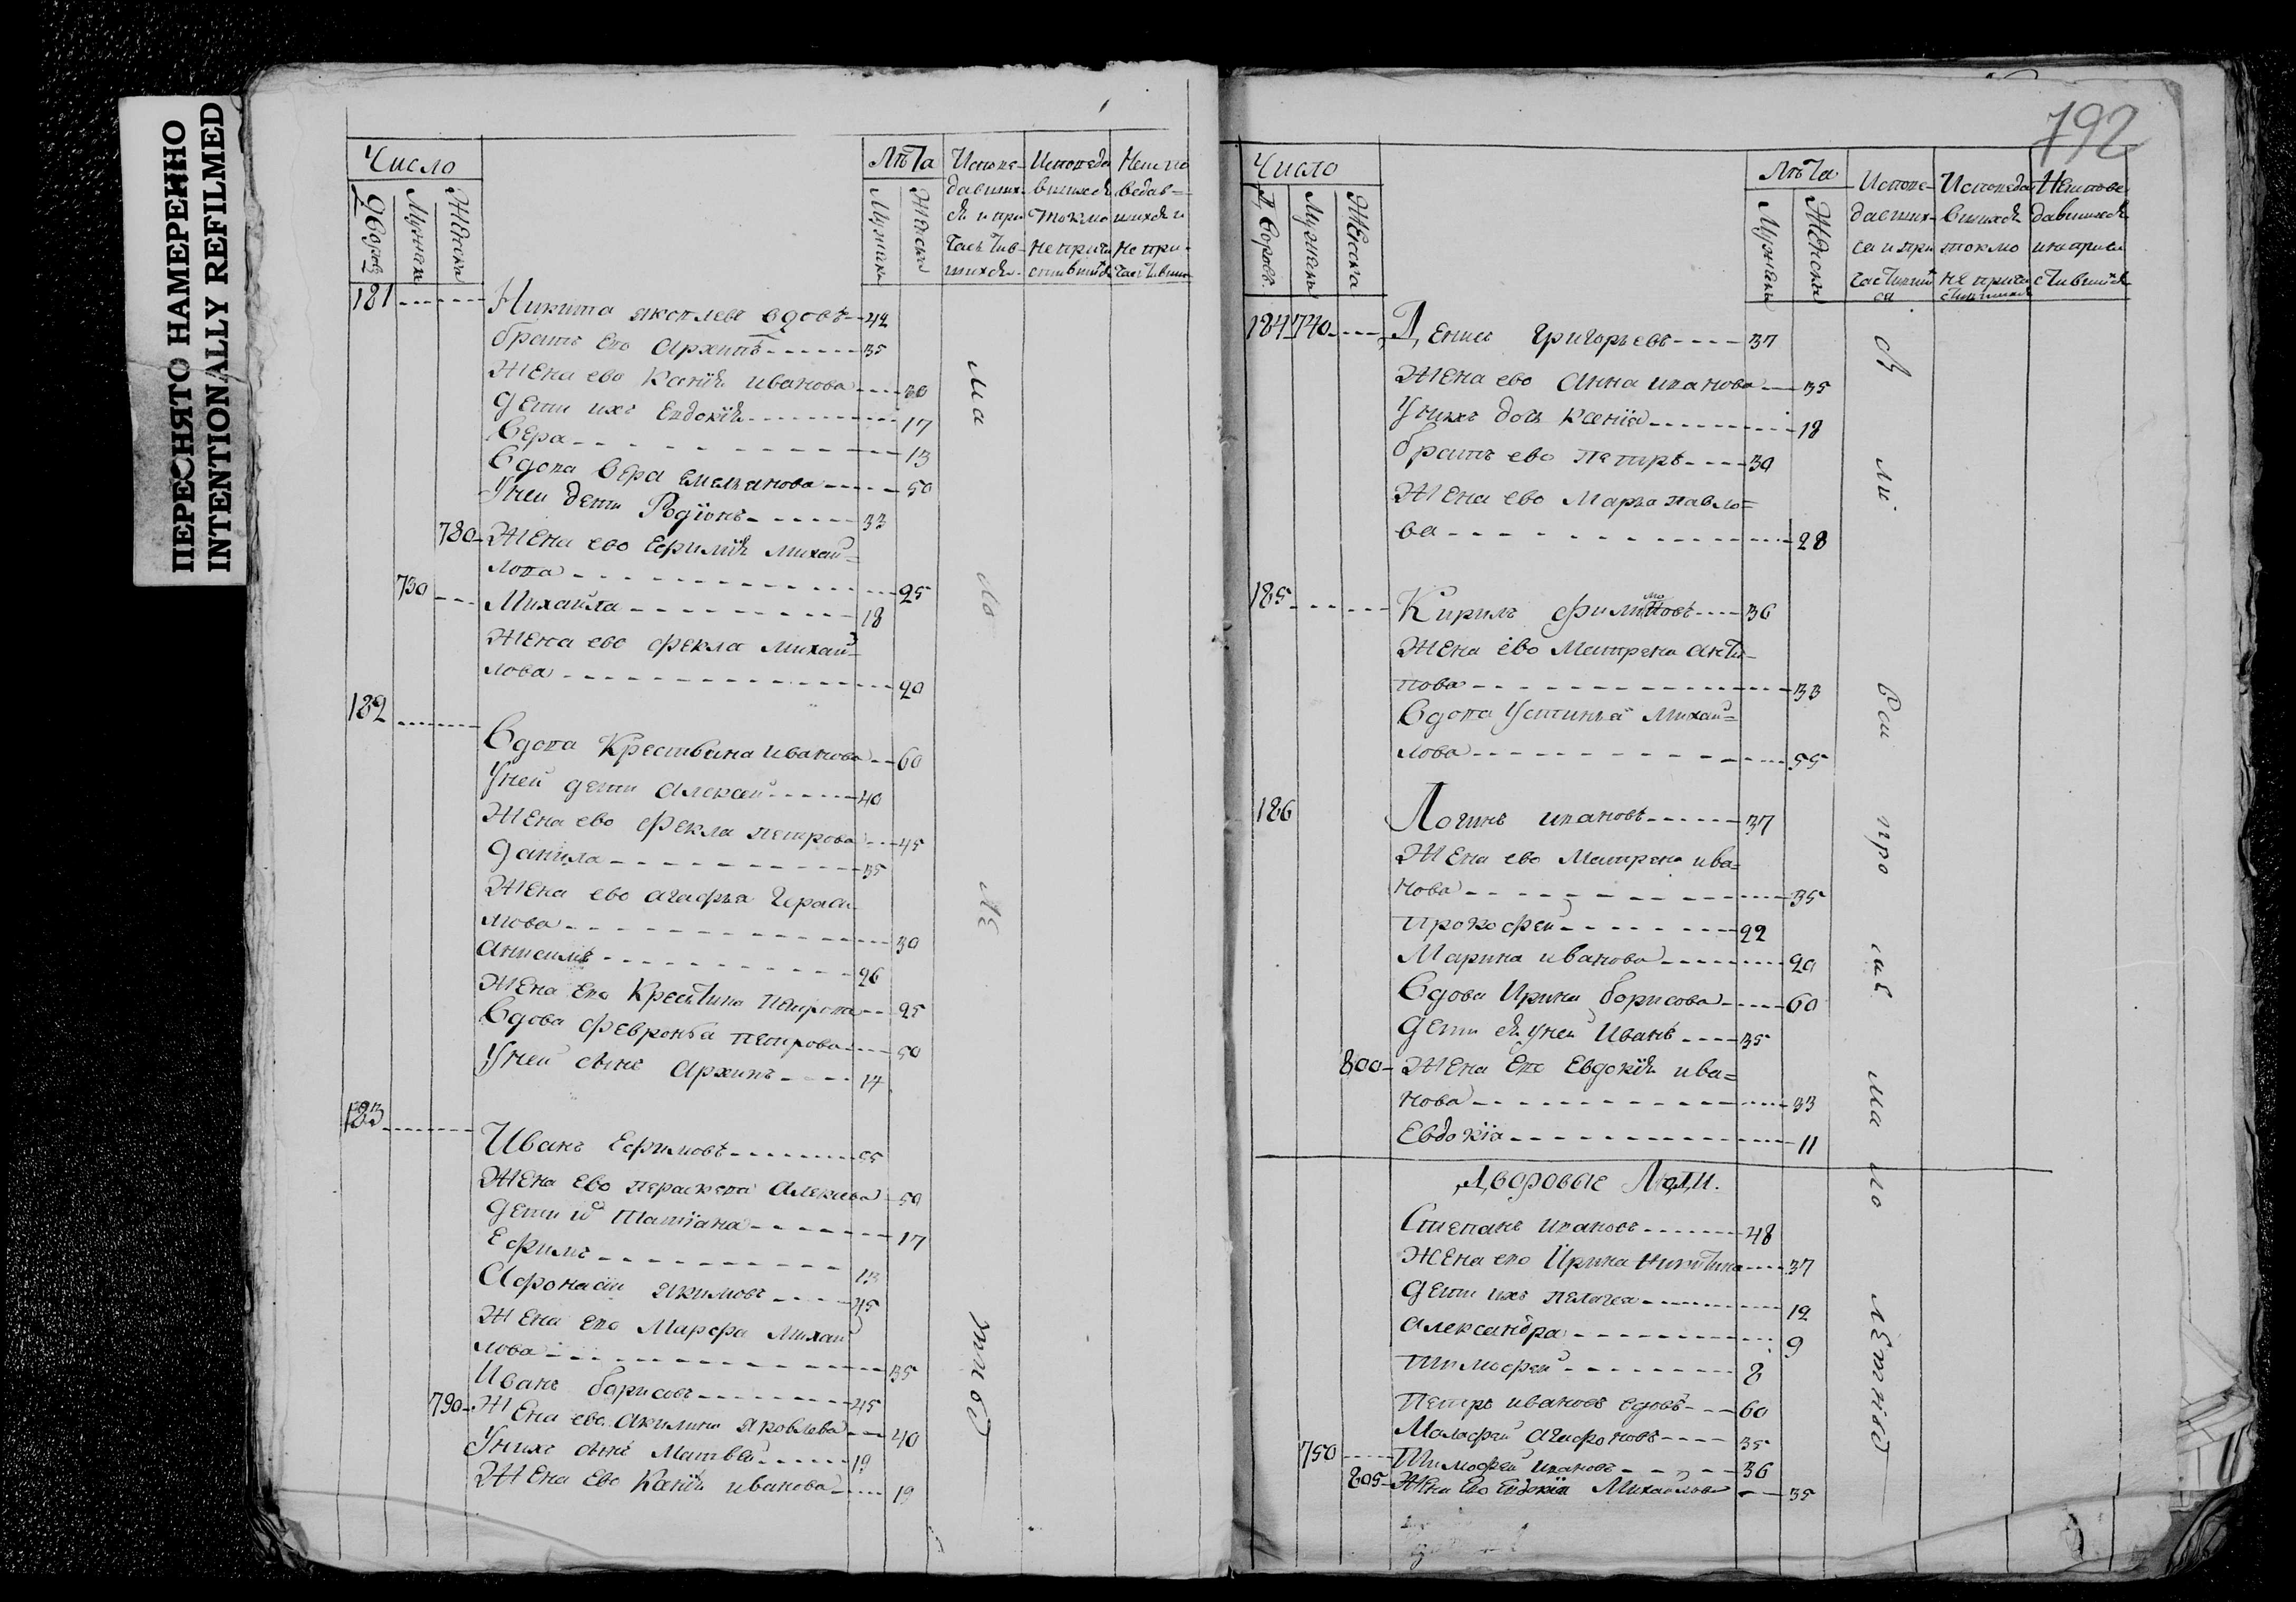 ПЕРЕСНЯТО НАМЕРЕННО
INTENTIONALLY REFILMED
Число
Дворовъ
Мужеск
Женска
Лѣта
Мужеск
Женски
Исповедавших
ся и при
частив
шихся
Исповеда
вшихся
токмо
не прича
стивших
Неиспо
ведав=
шихся и
не при-
частивши
181
Никита яковлевъ вдовъ 42
братъ ево Архипъ 35
Жена ево Ксенїя иванова 30
Дети ихъ Евдокїя 17
Вера 13
Вдова Вера емельянова 50
У ней дети Родїонъ 33
780 Жена ево Ефимїя михай=
лова 25
730 Михайла 18
Жена ево фекла михай=
лова 20
182
Вдова Крествина иванова 60
У ней дети Алексей 40
Жена ево фекла петрова 45
Данила 35
Жена ево агафья Гераси
мова 30
Анисимъ 26
Жена ево Крестина Петрова 25
Вдова февронья петрова 50
У ней сынъ Архипъ 14
183
Иванъ Ефимовъ 55
Жена ево параскева Алексева 50
Дети и Татїана 17
Ефимъ 13
Афонасей якимовъ 45
Жена ево Марфа Михай
лова 35
Иванъ борисовъ 45
790 Жена ево Акилина яковлева 40
У нихъ сынъ Матвей 19
Жена ево Ксенїя иванова 19
ма
ло
ле
792
Число
Дворовъ
Мужеск
Женска
Лѣта
Мужеск
Женски
Исповедавших
ся и при
частивши
ся
Исповеда
вшихся
токмо
не прича
стившихся
Неиспове
давшихся
и не прича
стившихся
184 740 Денисъ Григорьевъ 37
Жена ево Анна иванова 35
У нихъ дочь Ксенїя 18
братъ ево петръ 30
Жена ево Марья павло=
ва 28
185
Кирилъ филимоновъ 36
Жена ево Матрена анти
пова 33
Вдова Устинья Михай=
лова 55
186
Логинъ ивановъ 37
Жена ево Матрена ива=
нова 35
Прокофей 22
Марина иванова 20
Вдова Ирина борисова 60
Дети у ней Иванъ 35
800 Жена ево Евдокїя ива=
нова 33
Евдокїя 11
Дворовые Люди.
Степанъ ивановъ 48
Жена ево Ирина Никитина 37
Дети ихъ пелагея 12
Александра 9
Тимофей 8
Петръ ивановъ вдовъ 60
Малафей Агафоновъ 35
750 Тимофей ивановъ 36
805 Жена Ево Евдокїя Михайлова 35